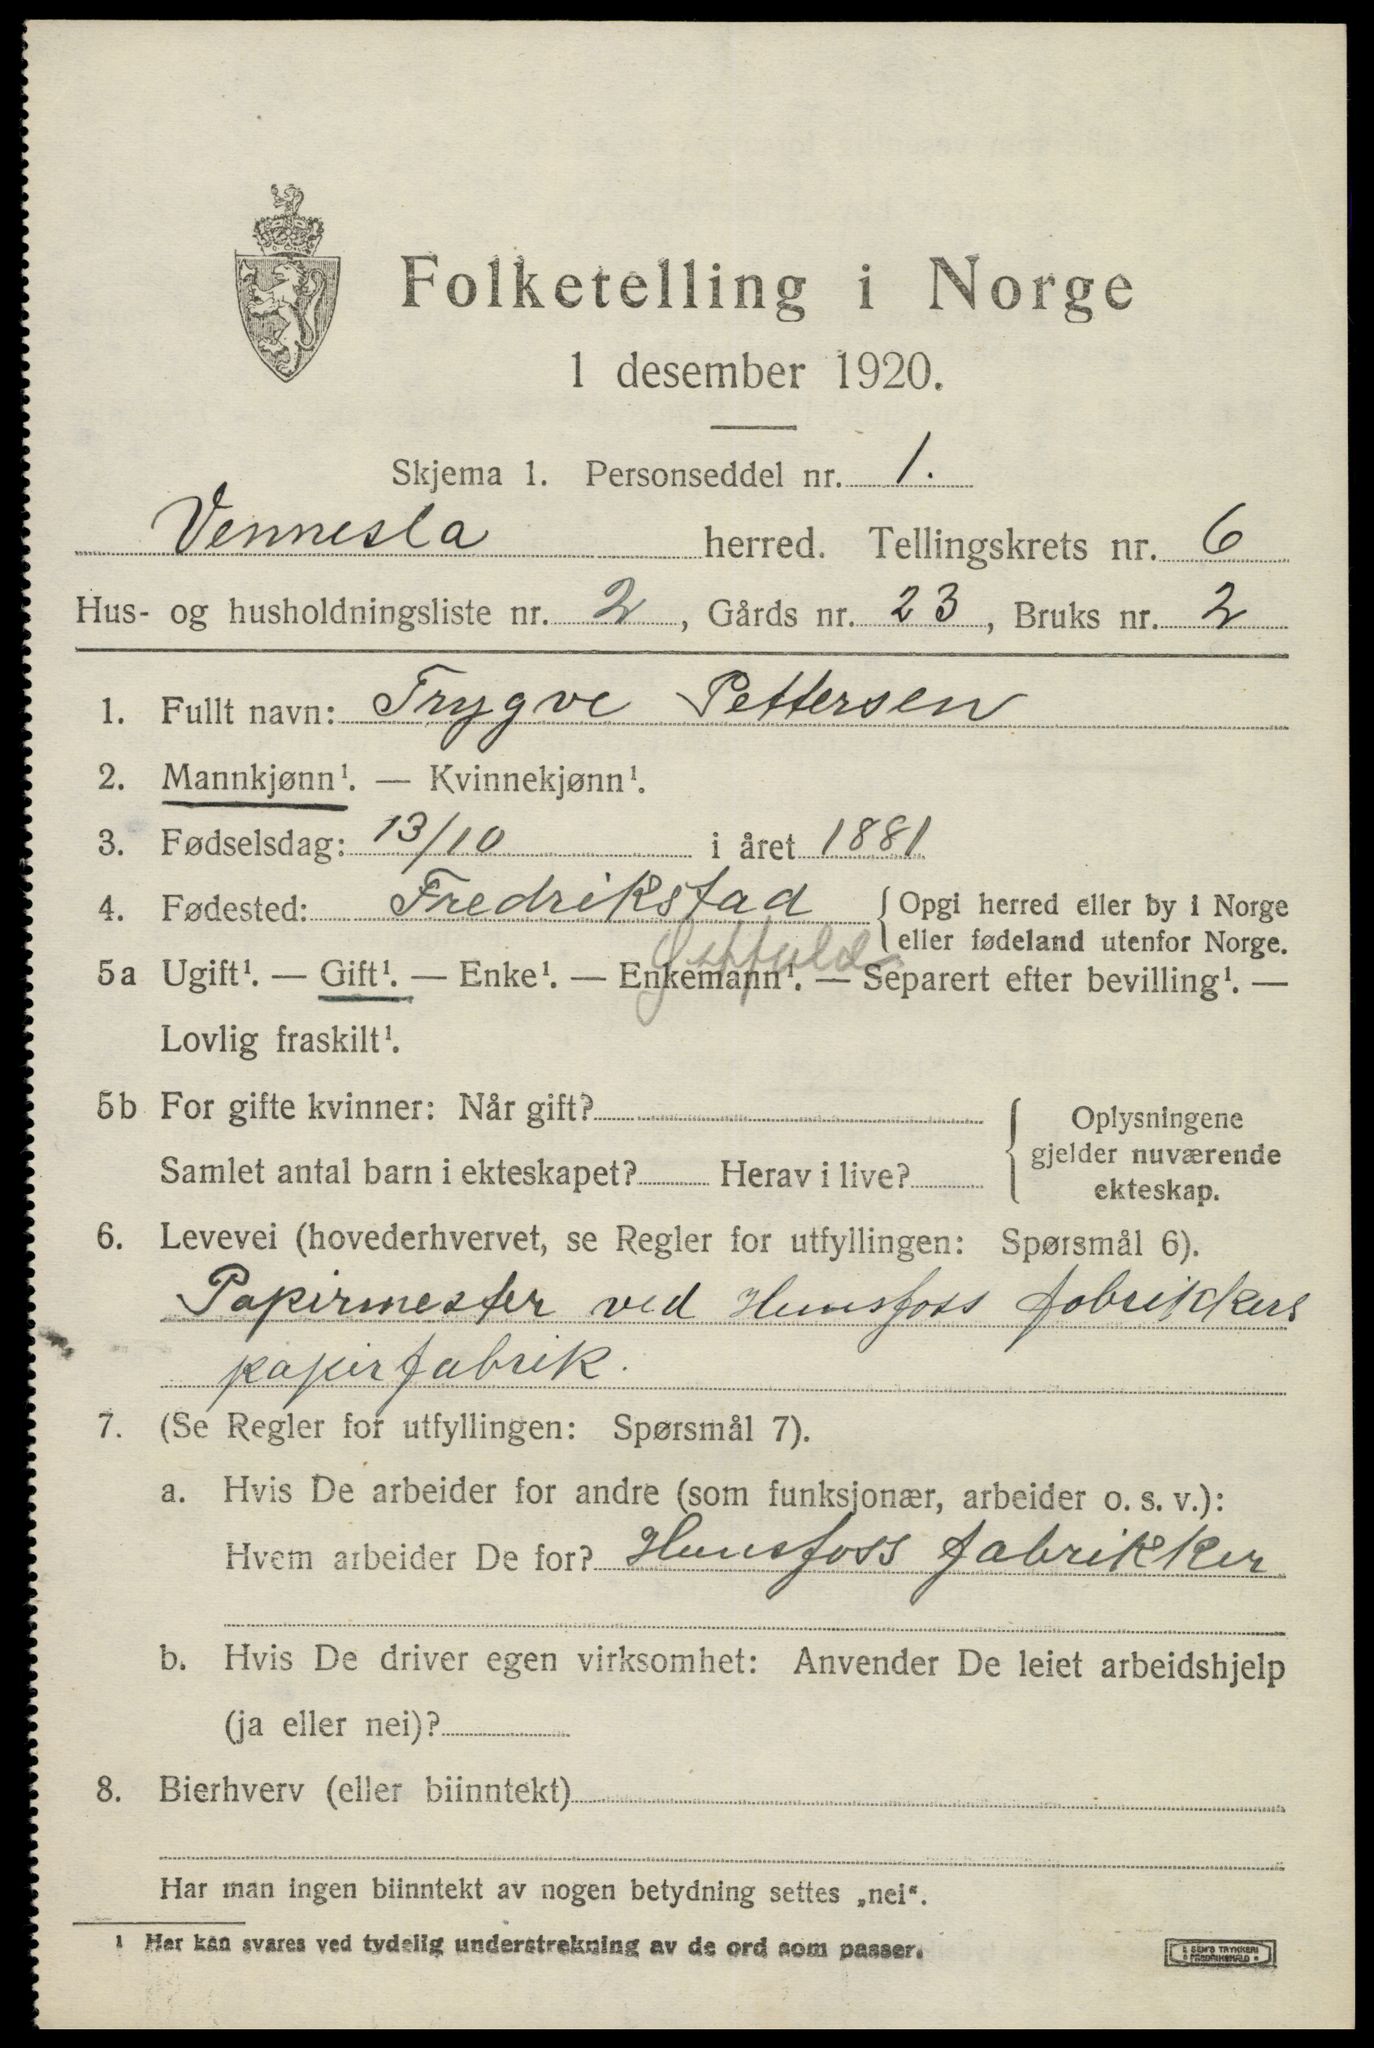 Folketelling i Norge
1 desember 1920.
Skjema 1. Personseddel nr. 1.
Vennesla herred. Tellingskrets nr. 6
Hus- og husholdningsliste nr. 2, Gårds nr. 23, Bruks nr. 2
1. Fullt navn: Trygve Pettersen
2. Mannkjønn¹. — Kvinnekjønn¹.
3. Fødselsdag: 13/10 i året 1881
4. Fødested: Fredrikstad { Opgi herred eller by i Norge
eller fødeland utenfor Norge.
5a Ugift¹. — Gift¹. — Enke¹. — Enkemann¹. — Separert efter bevilling¹. —
Lovlig fraskilt¹.
5b For gifte kvinner: Når gift?
Samlet antal barn i ekteskapet? Herav i live?
{ Oplysningene
gjelder nuværende
ekteskap.
6. Levevei (hovederhvervet, se Regler for utfyllingen: Spørsmål 6).
Papirmester ved Hunsfoss fabrikkers
papirfabrik.
7. (Se Regler for utfyllingen: Spørsmål 7).
a. Hvis De arbeider for andre (som funksjonær, arbeider o. s. v.):
Hvem arbeider De for? Hunsfoss fabrikker
b. Hvis De driver egen virksomhet: Anvender De leiet arbeidshjelp
(ja eller nei)?
8. Bierhverv (eller biinntekt)
Har man ingen biinntekt av nogen betydning settes „nei“.
¹ Her kan svares ved tydelig understrekning av de ord som passer.